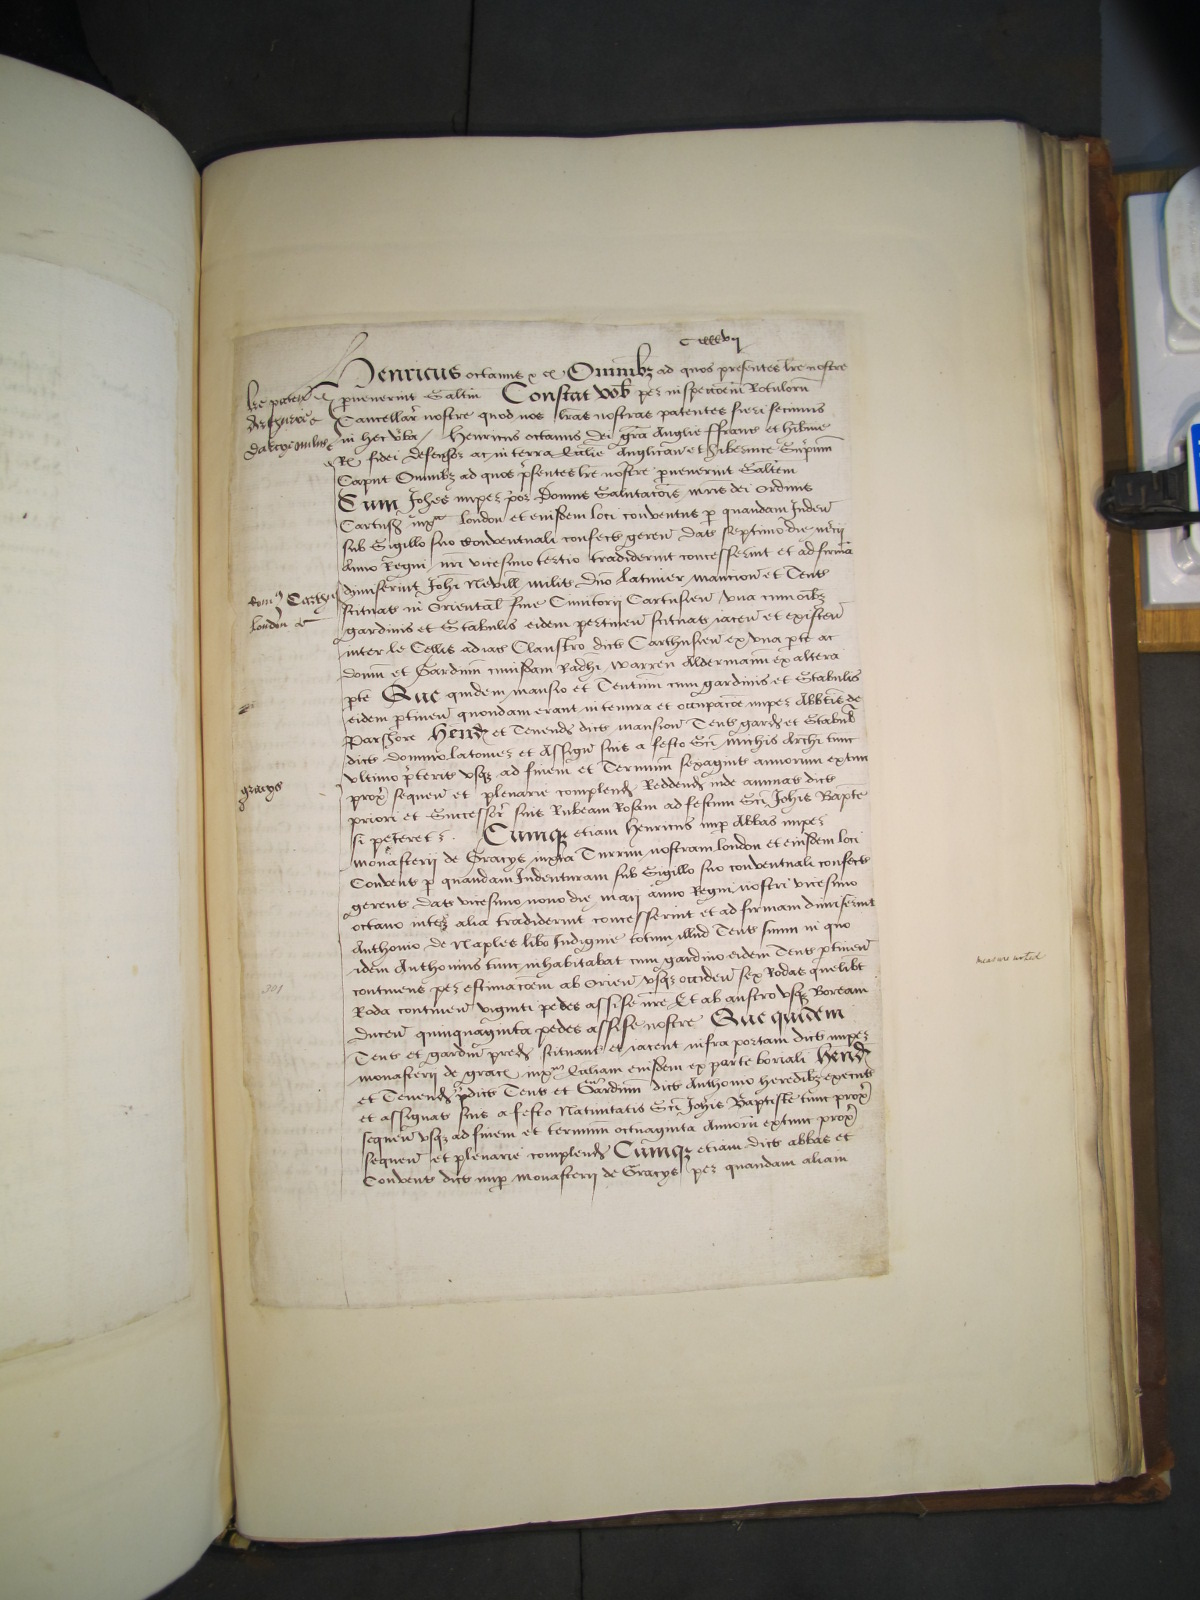 C iiiixx vij
Henricus octavus &c Omnibz ad quos presentes lre nostre
pervenerint Saltm Constat vob per inspeccoem Rotulorum
Cancellar nostre quod nos lras nostras patentes fieri fecimus
in hec vba / Henricus octavus dei gra Anglie ffrancie et hibnie
Rex fidei defensor ac in terra Ecclie Anglicane et Hibernice Supmum
Caput Omnibz ad quos psentes lre nostre pvenerint Saltem
Cum Johes nuper por Domus Salutacois mris dei ordinis
Cartus iuxta London et eiusdem loci conventus p quandam Inden
sub Sigillo suo Conventuali consect geren dat septimo die
Anno Regni nri vicesimo tertio tradiderint concesserint et ad firma
dimiserint Johi Nevill militi dno latimer mancion et Tent
scituat in Oriental fine Cimitorii Cartusien una cum oibz
gardinis et Stabulis eidem pertinen scituat iacen et existen
inter le Cellis ad ias Claustro dict Carthusien ex una pte ac
domu et Gardinu cuiusdam Radhi Warren Aldermanni ex altera
pte Que quidem mansio et Tentum cum gardinis et Stabulis
eidem ptinen quondam erant in tenura et occupacoe nuper Abbtis de
Parshore Hend et Tenend dict mansion Tent gard et Stabul
dict domino latomer et Assign suis a festo Sci Michis Archi tunc
ultimo pterit usqz ad finem et Terminum sexagint annorum extun
prox sequen et plenarie complend Reddend inde annuat dict
priori et Successor suis Rubeam Rosam ad festum Sci Johis Bapte
si peteretr. Cumqz etiam Henricus nup Abbas nuper
monasterii de Gracys iuxta Turrim nostram london et eiusdem loci
Convent p quandam Indenturam sub Sigillo suo conventuali consect
gerent dat vicesimo nono die maij anno Regni nostri vicesimo
octavo inter alia tradiderint concesserint et ad firmam dimiserint
Anthonio de Naples libo Indigine totum illud Tent suum in quo
idem Anthonius tunc inhabitabat cum gardino eidem Tent ptinen
continens per estimacoem ab Orien usqz occiden sex Rodas quelibt
Roda continen viginti pedes assise nre Et ab austro usqz Boream
ducen quinquaginta pedes assise nostre Que quidem
Tent et gardin pred scituantr et iacent infra portam dict nuper
monasterii de grace iuxta Ecliam eiusdem ex parte boriali Hend
et Tenend pdict Tent et Gardinum dict Anthonio heredibz execut
et assignat suis a festo Nativitatis Sci Johis Baptiste tunc prox
sequen usqz ad finem et terminum octuaginta Annoru extunc prox
sequen et plenarie complend Cumqz etiam dict abbas et
Convent dict nup monasterij de Gracys per quandam aliam
lre paten
Darcy militis
Carthus
london
gracys
301
measure noted